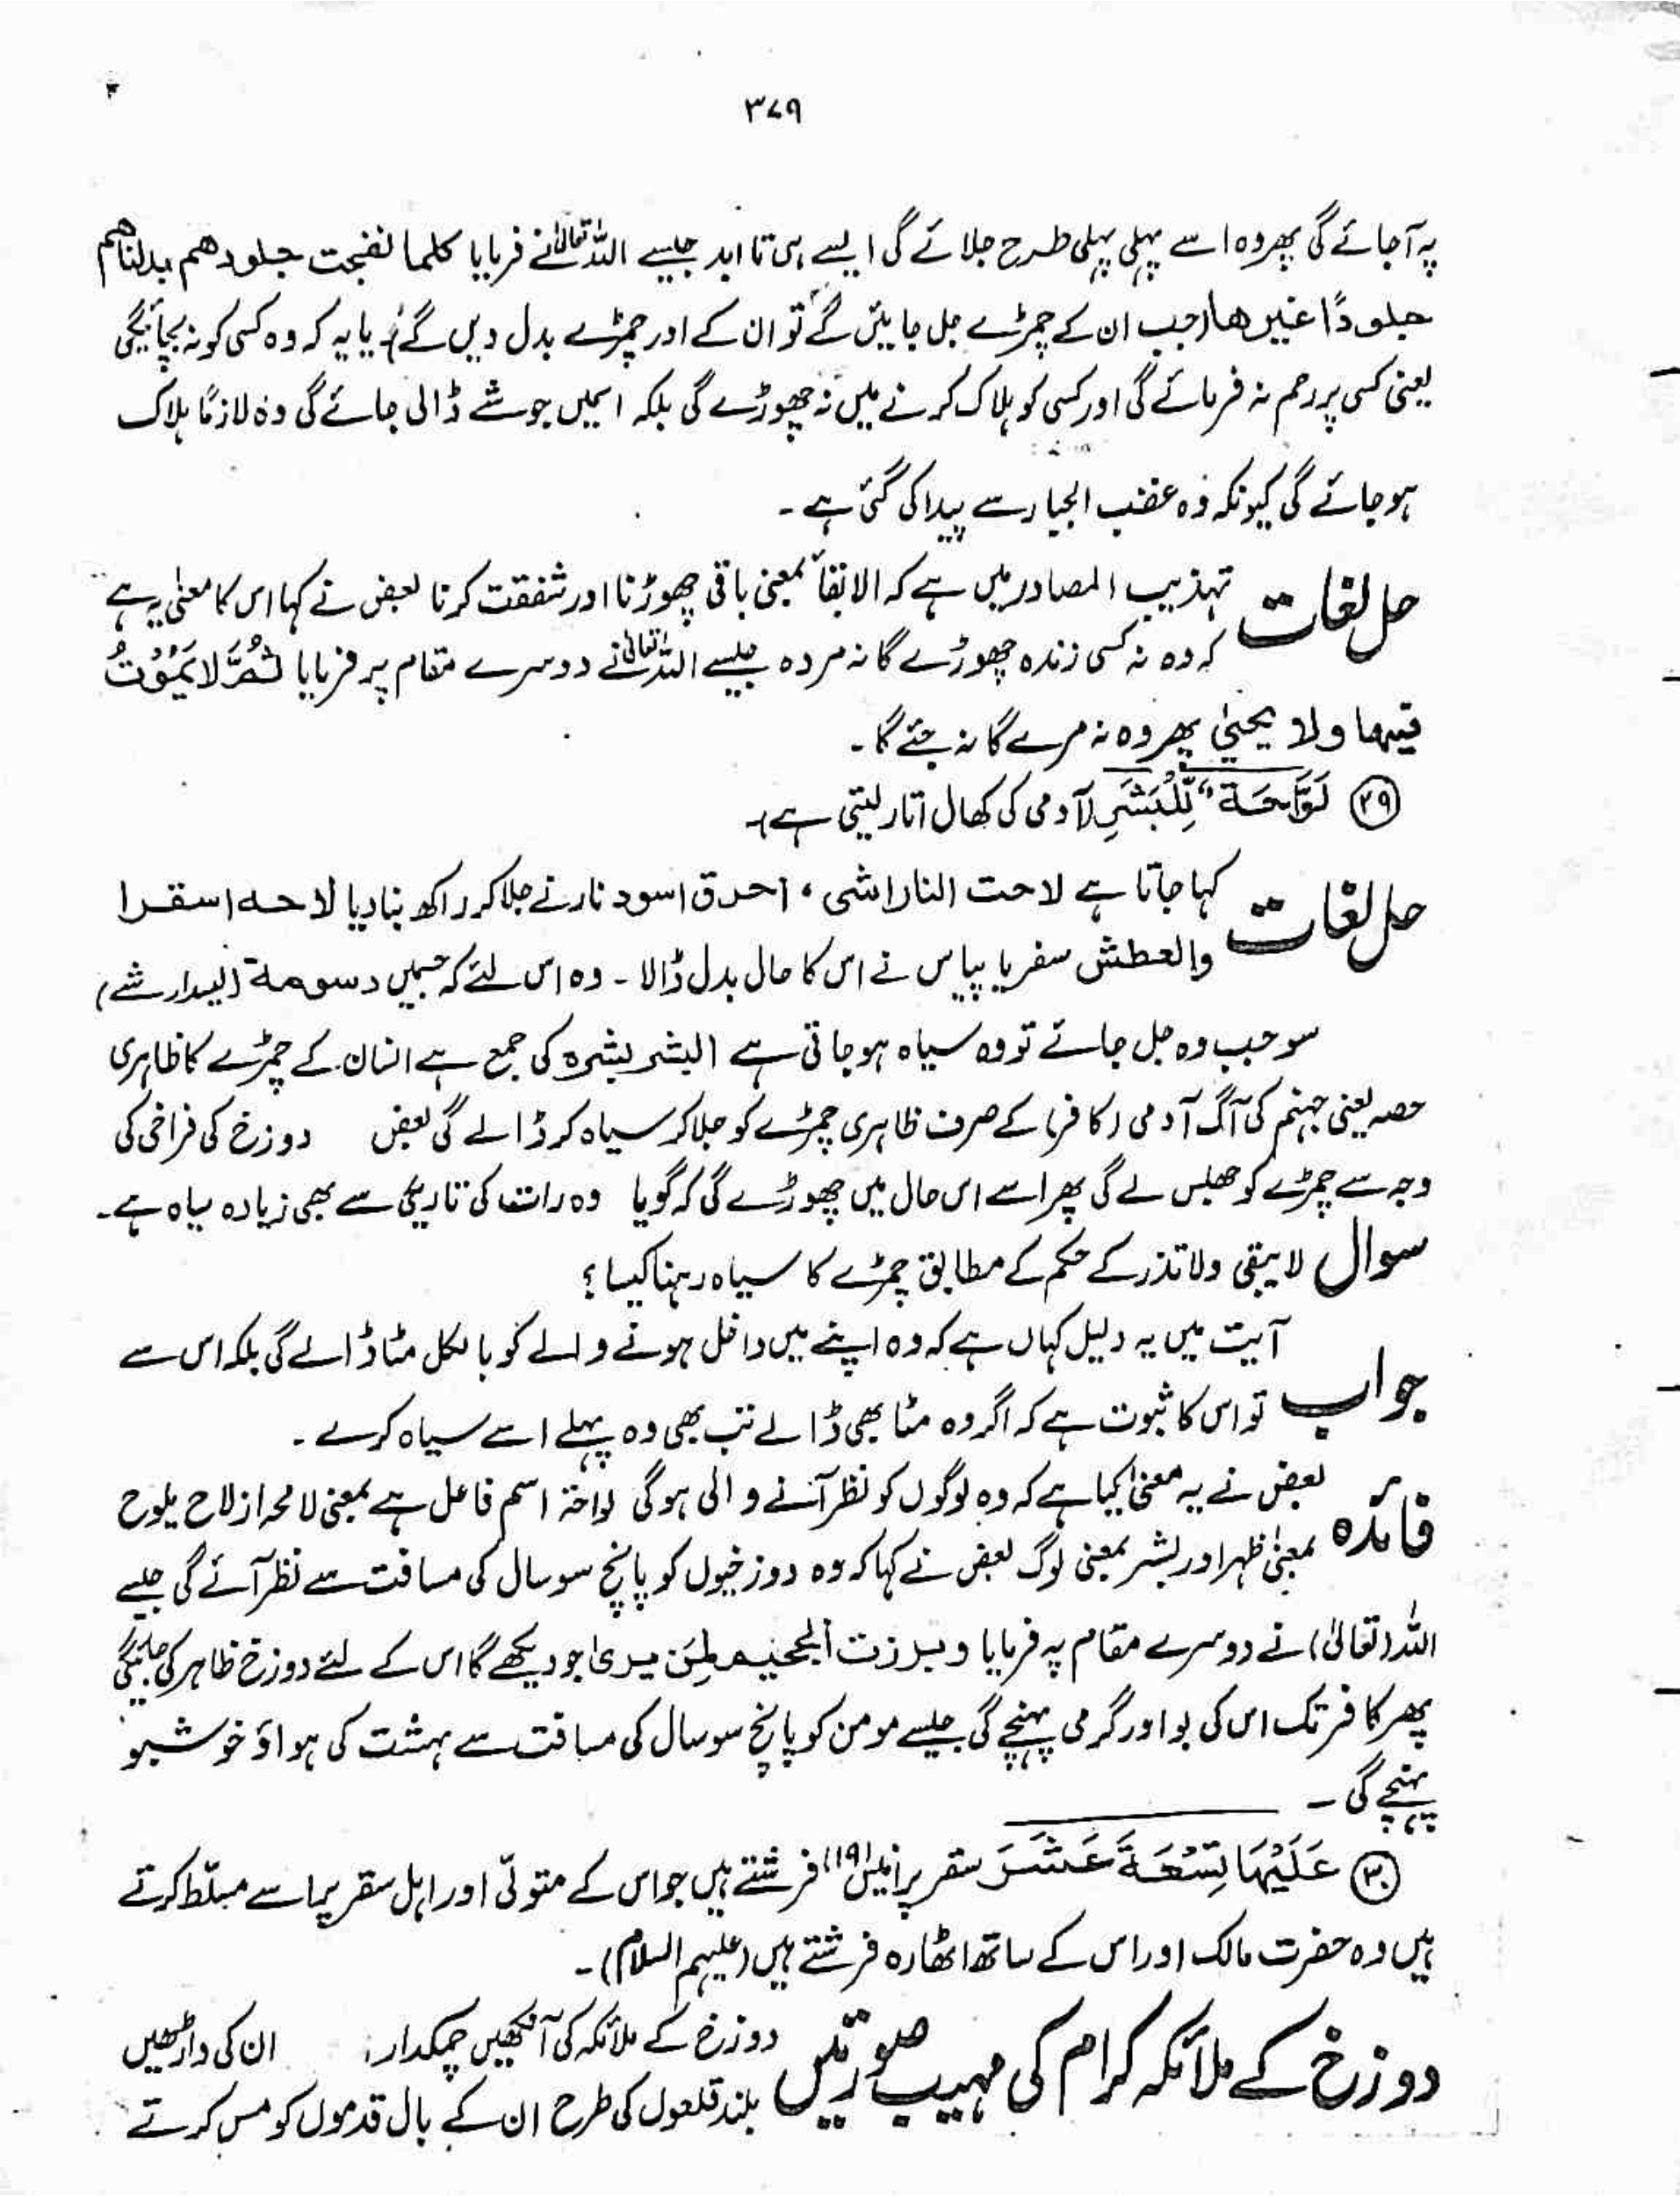 ۳۷۹
پہ آجائے گی پھر وہ اسے پہلی پہلی طرح جلائے گی ایسے ہی تا ابد جیسے اللہ تعالیٰ نے فرمایا کلما نضجت جلودھم بدلناھم
جلودًا غیرھا (جب ان کے چمڑے جل جائیں گے تو ان کے اور چمڑے بدل دیں گے) یا یہ کہ وہ کسی کو نہ بچائیگی
یعنی کسی پر رحم نہ فرمائے گی اور کسی کو ہلاک کرنے میں نہ چھوڑے گی بلکہ اسمیں جو شے ڈالی جائے گی وہ لازمًا ہلاک
ہوجائے گی کیونکہ وہ غضب الجبار سے پیدا کی گئی ہے ۔
حل لغات تہذیب المصادر میں ہے کہ الابقاء بمعنی باقی چھوڑنا اور شفقت کرنا بعض نے کہا اس کا معنیٰ یہ ہے
کہ وہ نہ کسی زندہ چھوڑے گا نہ مردہ جیسے اللہ تعالیٰ نے دوسرے مقام پر فرمایا ثُمَّ لَا یَمُوْتُ
فیھا ولا یحییٰ پھر وہ نہ مرے گا نہ جئے گا ۔
(۲۹) لَوَّاحَةٌ لِّلْبَشَرِ (آدمی کی کھال اتار لیتی ہے)۔
حل لغات کہا جاتا ہے لاحت النار اشی ، احرق اسود نار نے جلا کر راکھ بنا دیا لاحہ اسقرا
والعطش سفر یا پیاس نے اس کا حال بدل ڈالا ۔ وہ اس لئے کہ جسمیں دسومة (لیسدار شے)
سو جب وہ جل جائے تو وہ سیاہ ہوجاتی ہے البشر بشرہ کی جمع ہے انسان کے چمڑے کا ظاہری
حصہ یعنی جہنم کی آگ آدمی (کافر) کے صرف ظاہری چمڑے کو جلا کر سیاہ کر ڈالے گی بعض دوزخ کی فراخی کی
وجہ سے چمڑے کو جھلس لے گی پھر اسے اس حال میں چھوڑے گی کہ گویا وہ رات کی تاریکی سے بھی زیادہ سیاہ ہے ۔
سوال لا یبقی ولا تذر کے حکم کے مطابق چمڑے کا سیاہ رہنا کیسا ؟
جواب آیت میں یہ دلیل کہاں ہے کہ وہ اپنے میں داخل ہونے والے کو بالکل مٹا ڈالے گی بلکہ اس سے
تو اس کا ثبوت ہے کہ اگر وہ مٹا بھی ڈالے تب بھی وہ پہلے اسے سیاہ کرے ۔
فائدہ بعض نے یہ معنیٰ کیا ہے کہ وہ لوگوں کو نظر آنے والی ہوگی لواحۃ اسم فاعل ہے بمعنی لامحہ از لاح یلوح
بمعنیٰ ظہر اور بشر بمعنی لوگ بعض نے کہا کہ وہ دوزخیوں کو پانچ سو سال کی مسافت سے نظر آئے گی جیسے
اللہ (تعالیٰ) نے دوسرے مقام پہ فرمایا وبرزت الجحیم لِمَن یریٰ جو دیکھے گا اس کے لئے دوزخ ظاہر کی جائیگی
پھر کافر تک اس کی بو اور گرمی پہنچے گی جیسے مومن کو پانچ سو سال کی مسافت سے بہشت کی ہوا و خوشبو
پہنچے گی ۔
(۳۰) عَلَیْہَا تِسْعَةَ عَشَرَ سقر پر انیس (۱۹) فرشتے ہیں جو اس کے متولّی اور اہل سقر پر اسے مسلّط کرتے
ہیں وہ حضرت مالک اور اس کے ساتھ اٹھارہ فرشتے ہیں (علیہم السلام) ۔
دوزخ کے ملائکہ کرام کی مہیب صورتیں دوزخ کے ملائکہ کی آنکھیں چمکدار، ان کی داڑھیں
بلند قلعوں کی طرح ان کے بال قدموں کو مس کرتے